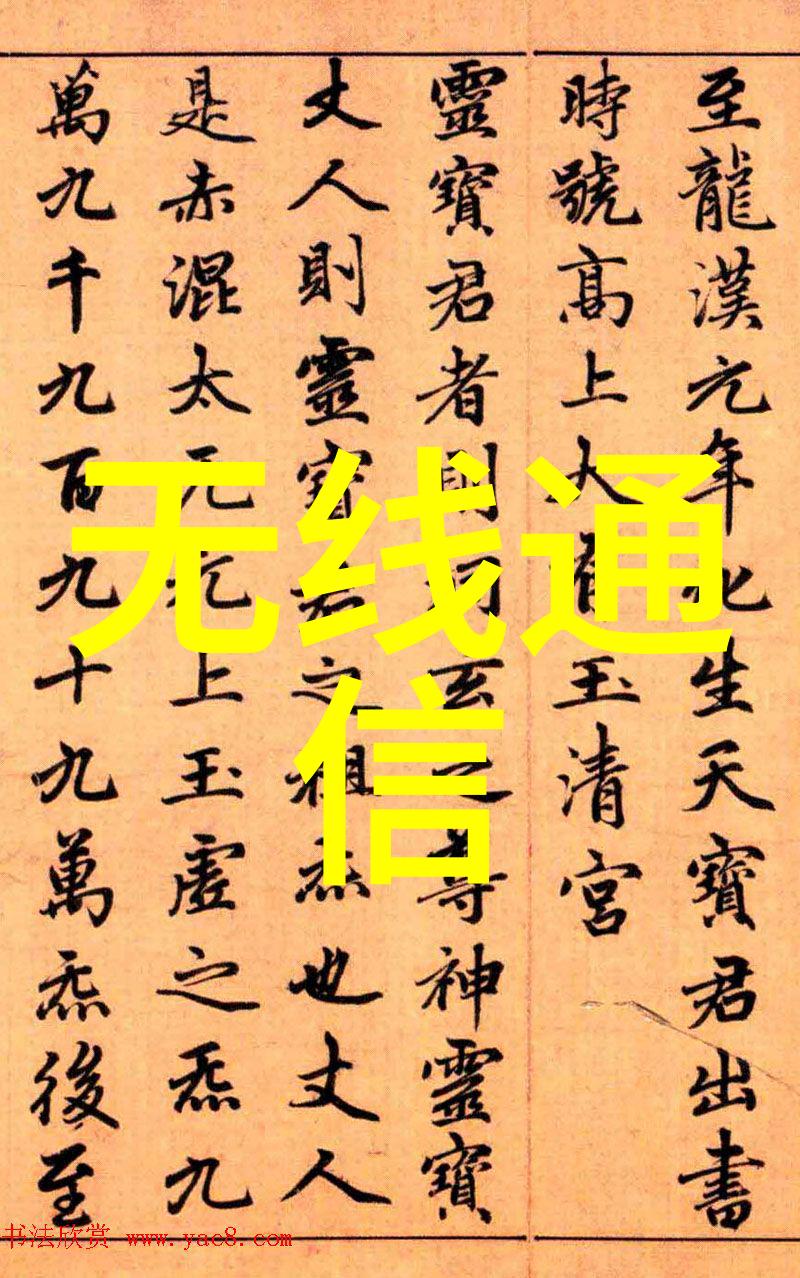 至龍漢元年化生天寶君出書
時號高上大有玉清宮
靈寶君者則洞玄之尊神靈寶
丈人則靈寶君之祖炁也丈人
是赤混太无元上玉虛之炁九
萬九千九百九十九萬炁後至
无线通
信
书法欣赏 www.yac8.com